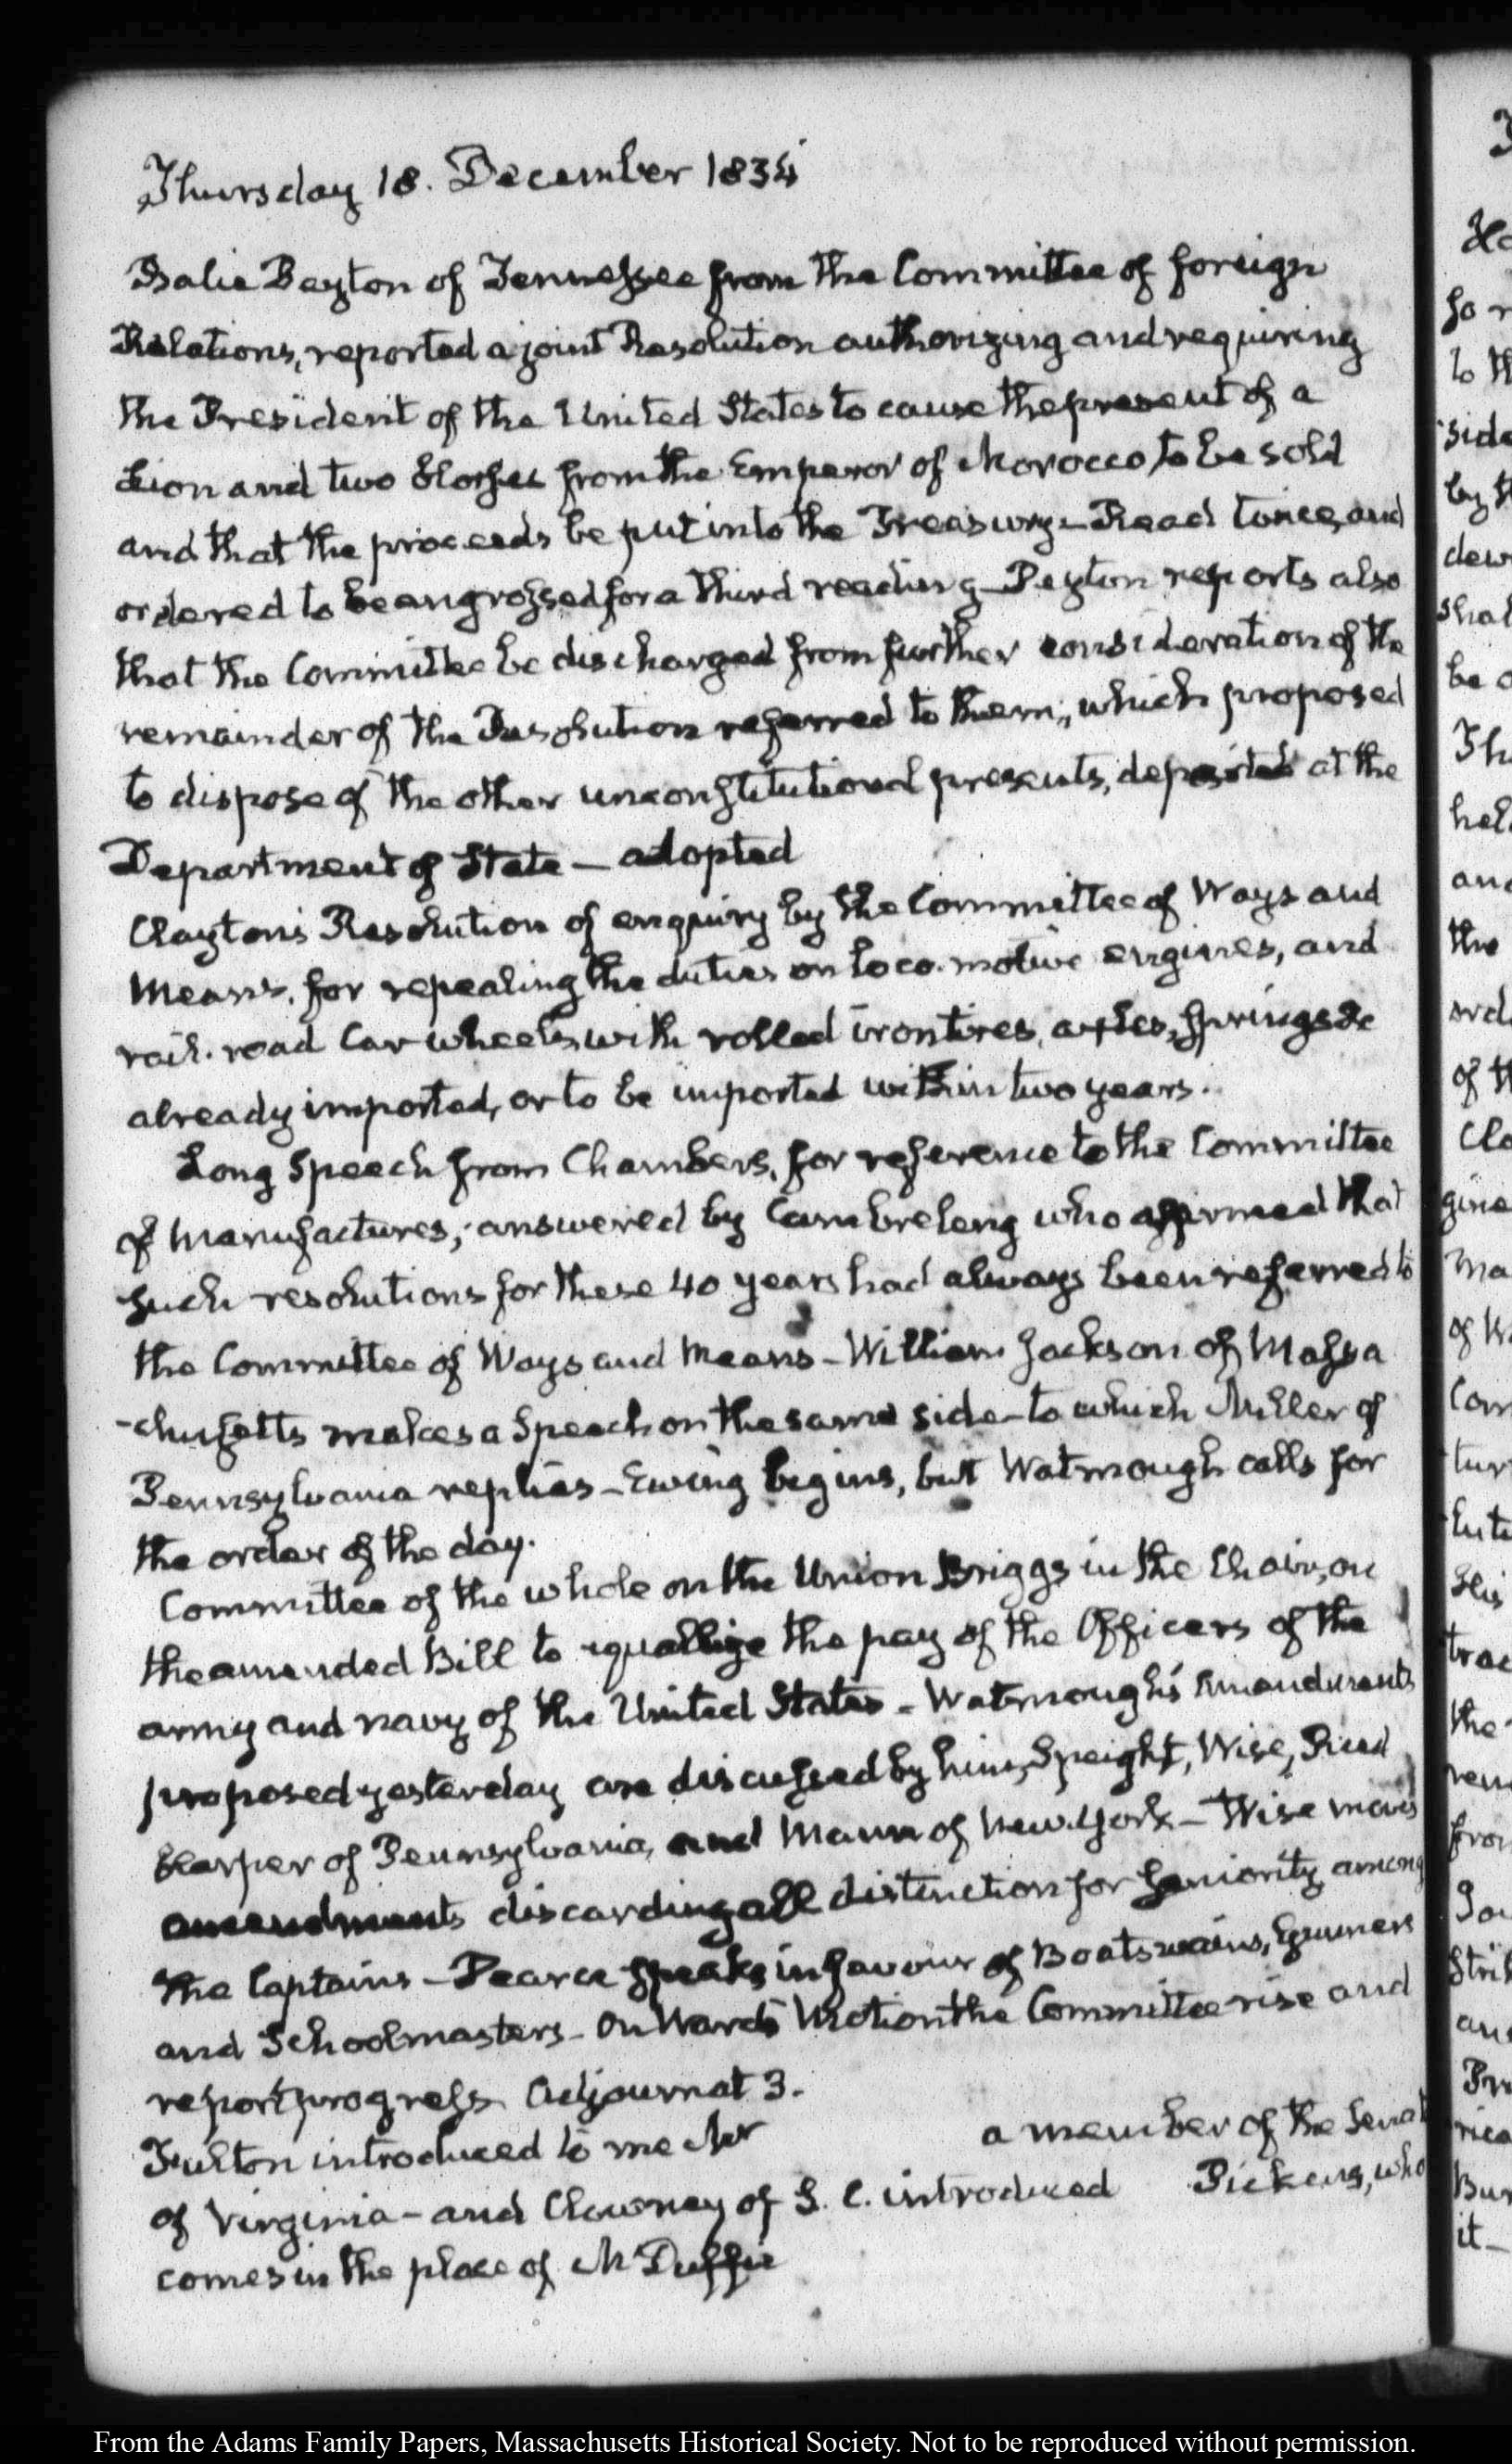 Thursday 18. December 1834
Balie Peyton of Tennessee from the Committee of foreign
Relations, reported a joint Resolution authorizing and requiring
the President of the United States to cause the present of a
Lion and two Horses from the Emperor of Morocco, to be sold
and that the proceeds be put into the Treasury - Read twice, and
ordered to be engrossed for a third reading - Peyton reports also
that the Committee be discharged from further consideration of the
remainder of the Resolution referred to them, which proposed
to dispose of the other unconstitutional presents, deposited at the
Department of State - adopted
Clayton's Resolution of enquiry by the Committee of Ways and
Means, for repealing the duties on loco-motive engines, and
rail-road Car wheels with rolled iron tires, axles, springs &c
already imported, or to be imported within two years.
Long Speech from Chambers, for reference to the Committee
of Manufactures, answered by Cambreleng who affirmed that
such resolutions for these 40 years had always been referred to
the Committee of Ways and Means - William Jackson of Massa
-chusetts makes a Speech on the same side - to which Miller of
Pennsylvania replies - Ewing begins, but Watmough calls for
the order of the day.
Committee of the whole on the Union Briggs in the Chair, on
the amended Bill to equallize the pay of the Officers of the
army and navy of the United States - Watmough's Amendments
proposed yesterday are discussed by him, Speight, Wise,
Harper of Pennsylvania, and Mann of New-York - Wise moves
amendments discarding all distinction for seniority among
the Captains - Pearce speaks in favour of Boatswains, Gunners
and Schoolmasters - On Ward's Motion the Committee rise and
report progress Adjourn at 3.
Fulton introduced to me Mr a member of the Senate
of Virginia - and Clowney of S. C. introduced Pickens, who
comes in the place of McDuffie
From the Adams Family Papers, Massachusetts Historical Society. Not to be reproduced without permission.